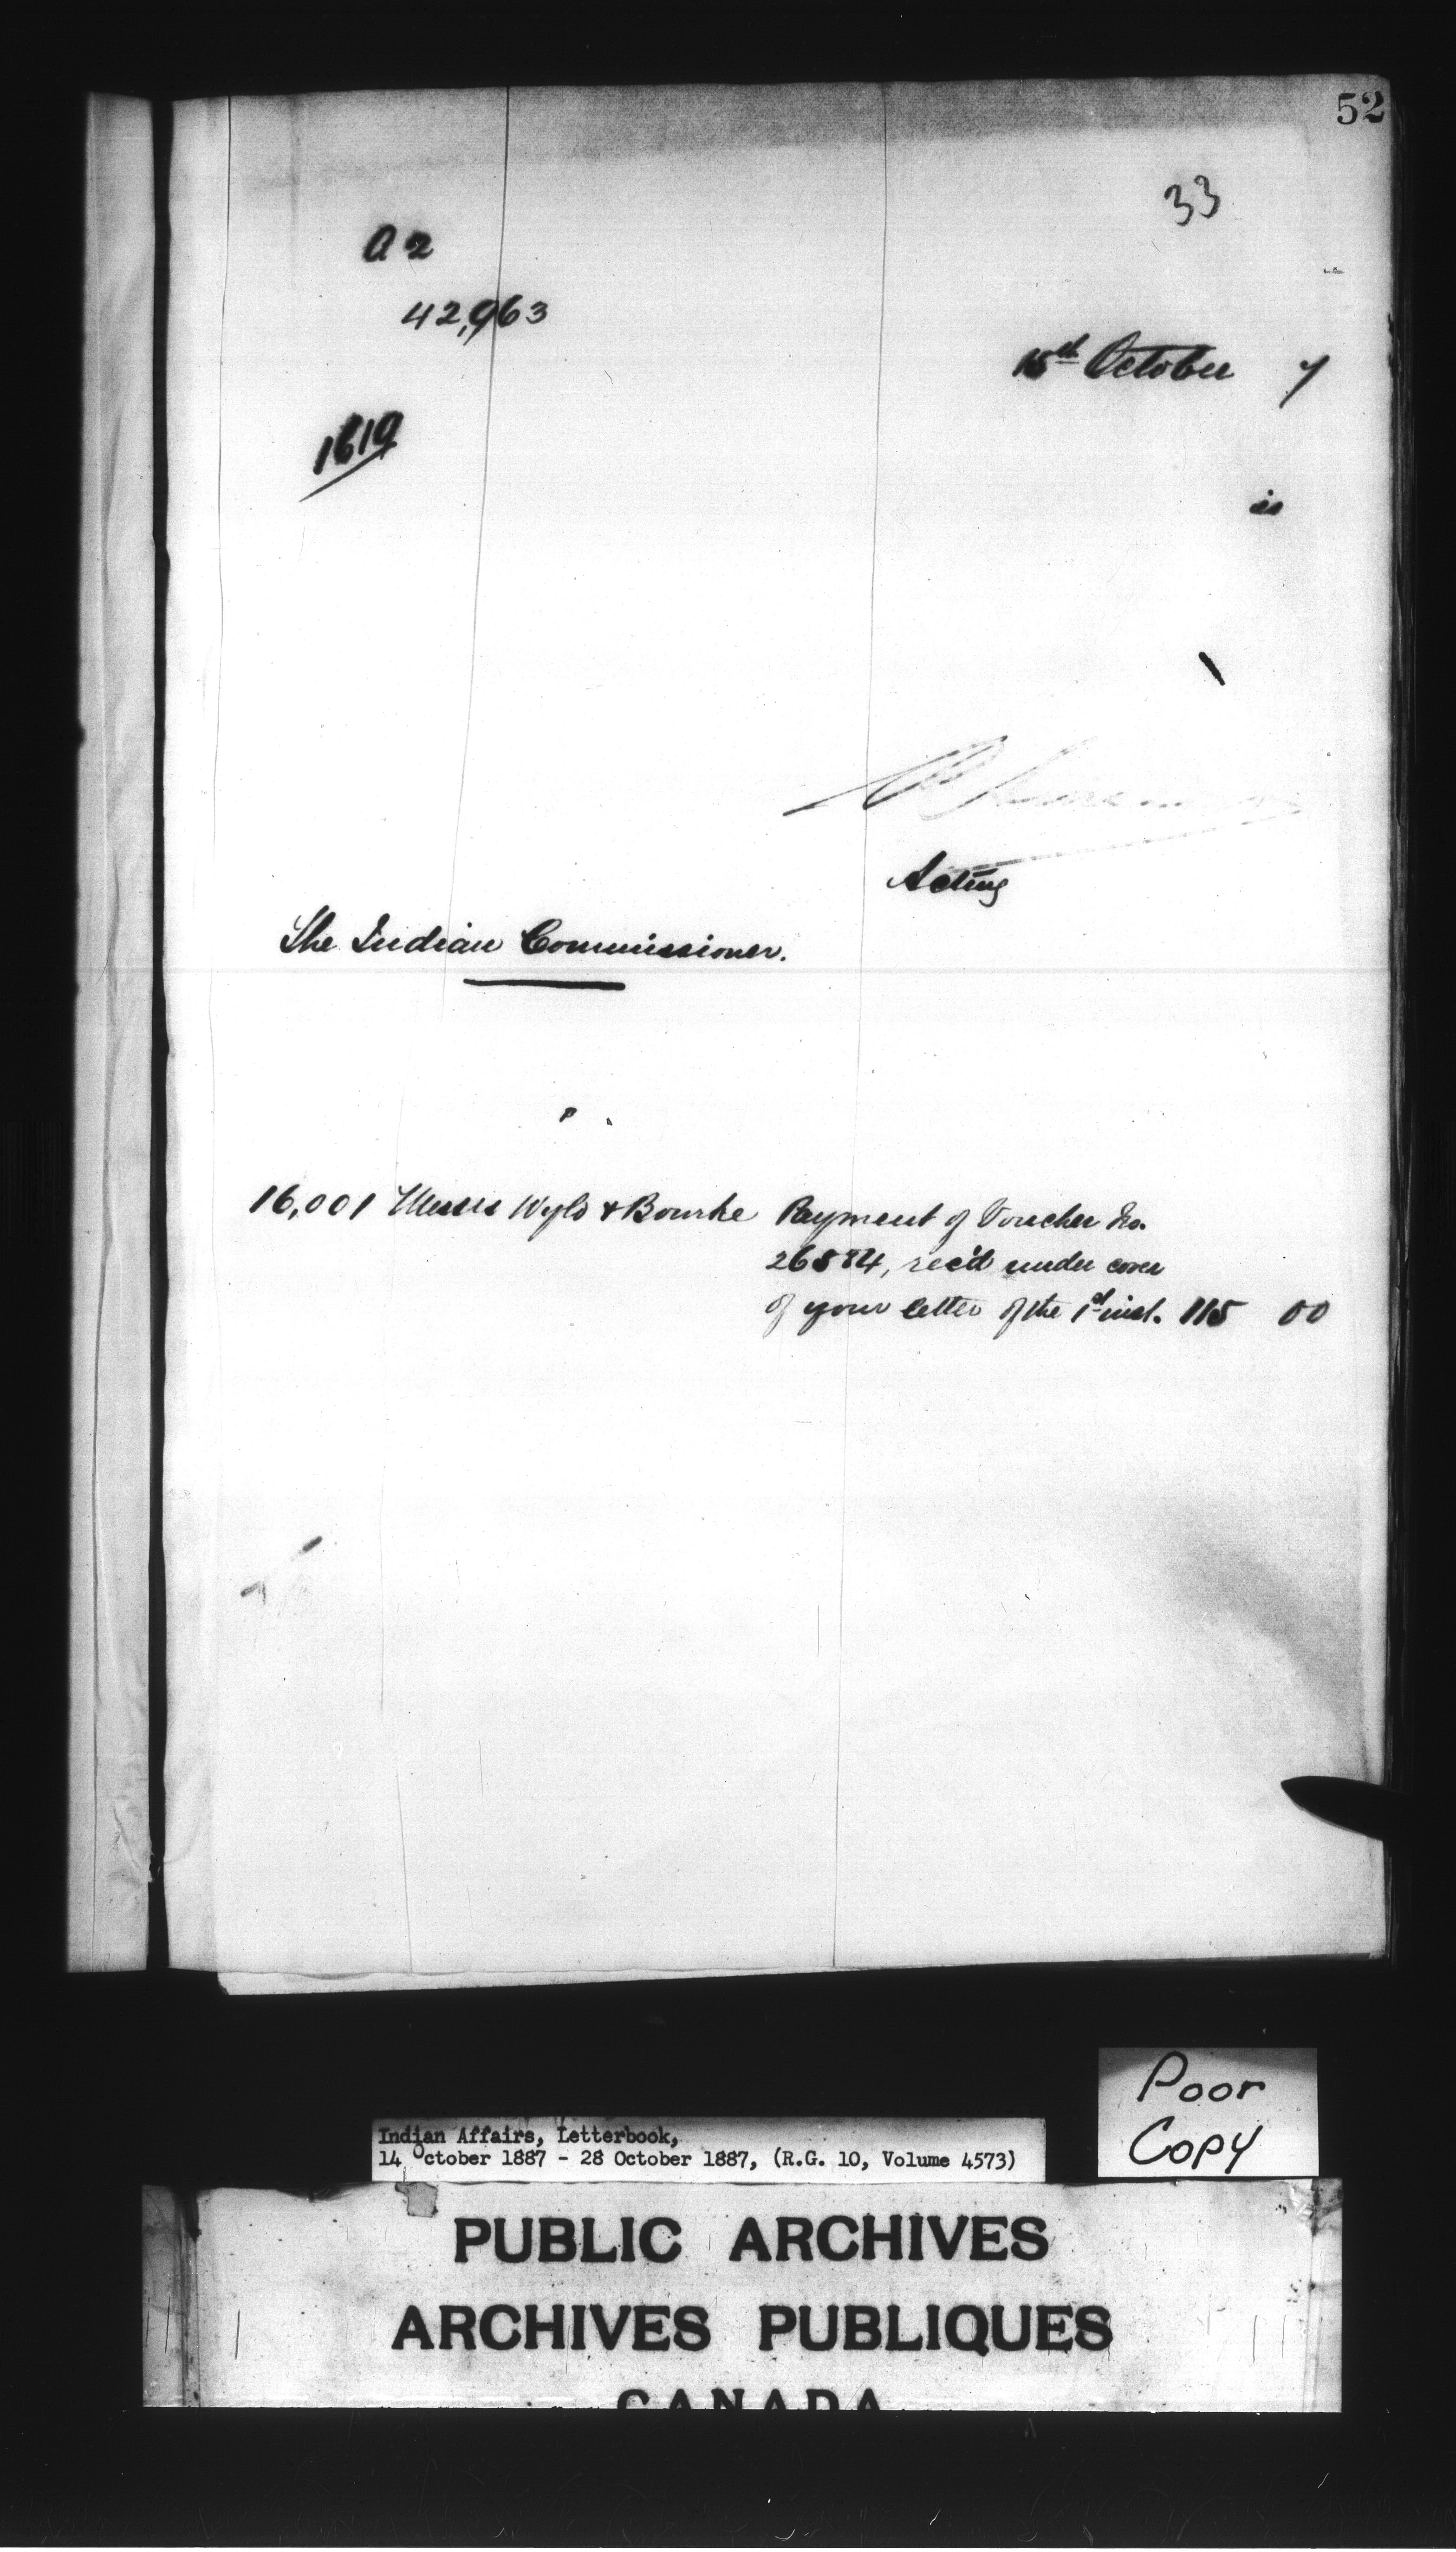 52
33
A 2
42,963
15th October 7
1619
is
Acting
The Indian Commissioner.
16,001 Messrs Wyld & Bourke Payment of Voucher No.
26584, rec'd under cover
of your letter of the 1st inst. 115 00
Poor
Copy
Indian Affairs, Letterbook,
14 October 1887 - 28 October 1887, (R.G. 10, Volume 4573)
PUBLIC ARCHIVES
ARCHIVES PUBLIQUES
CANADA